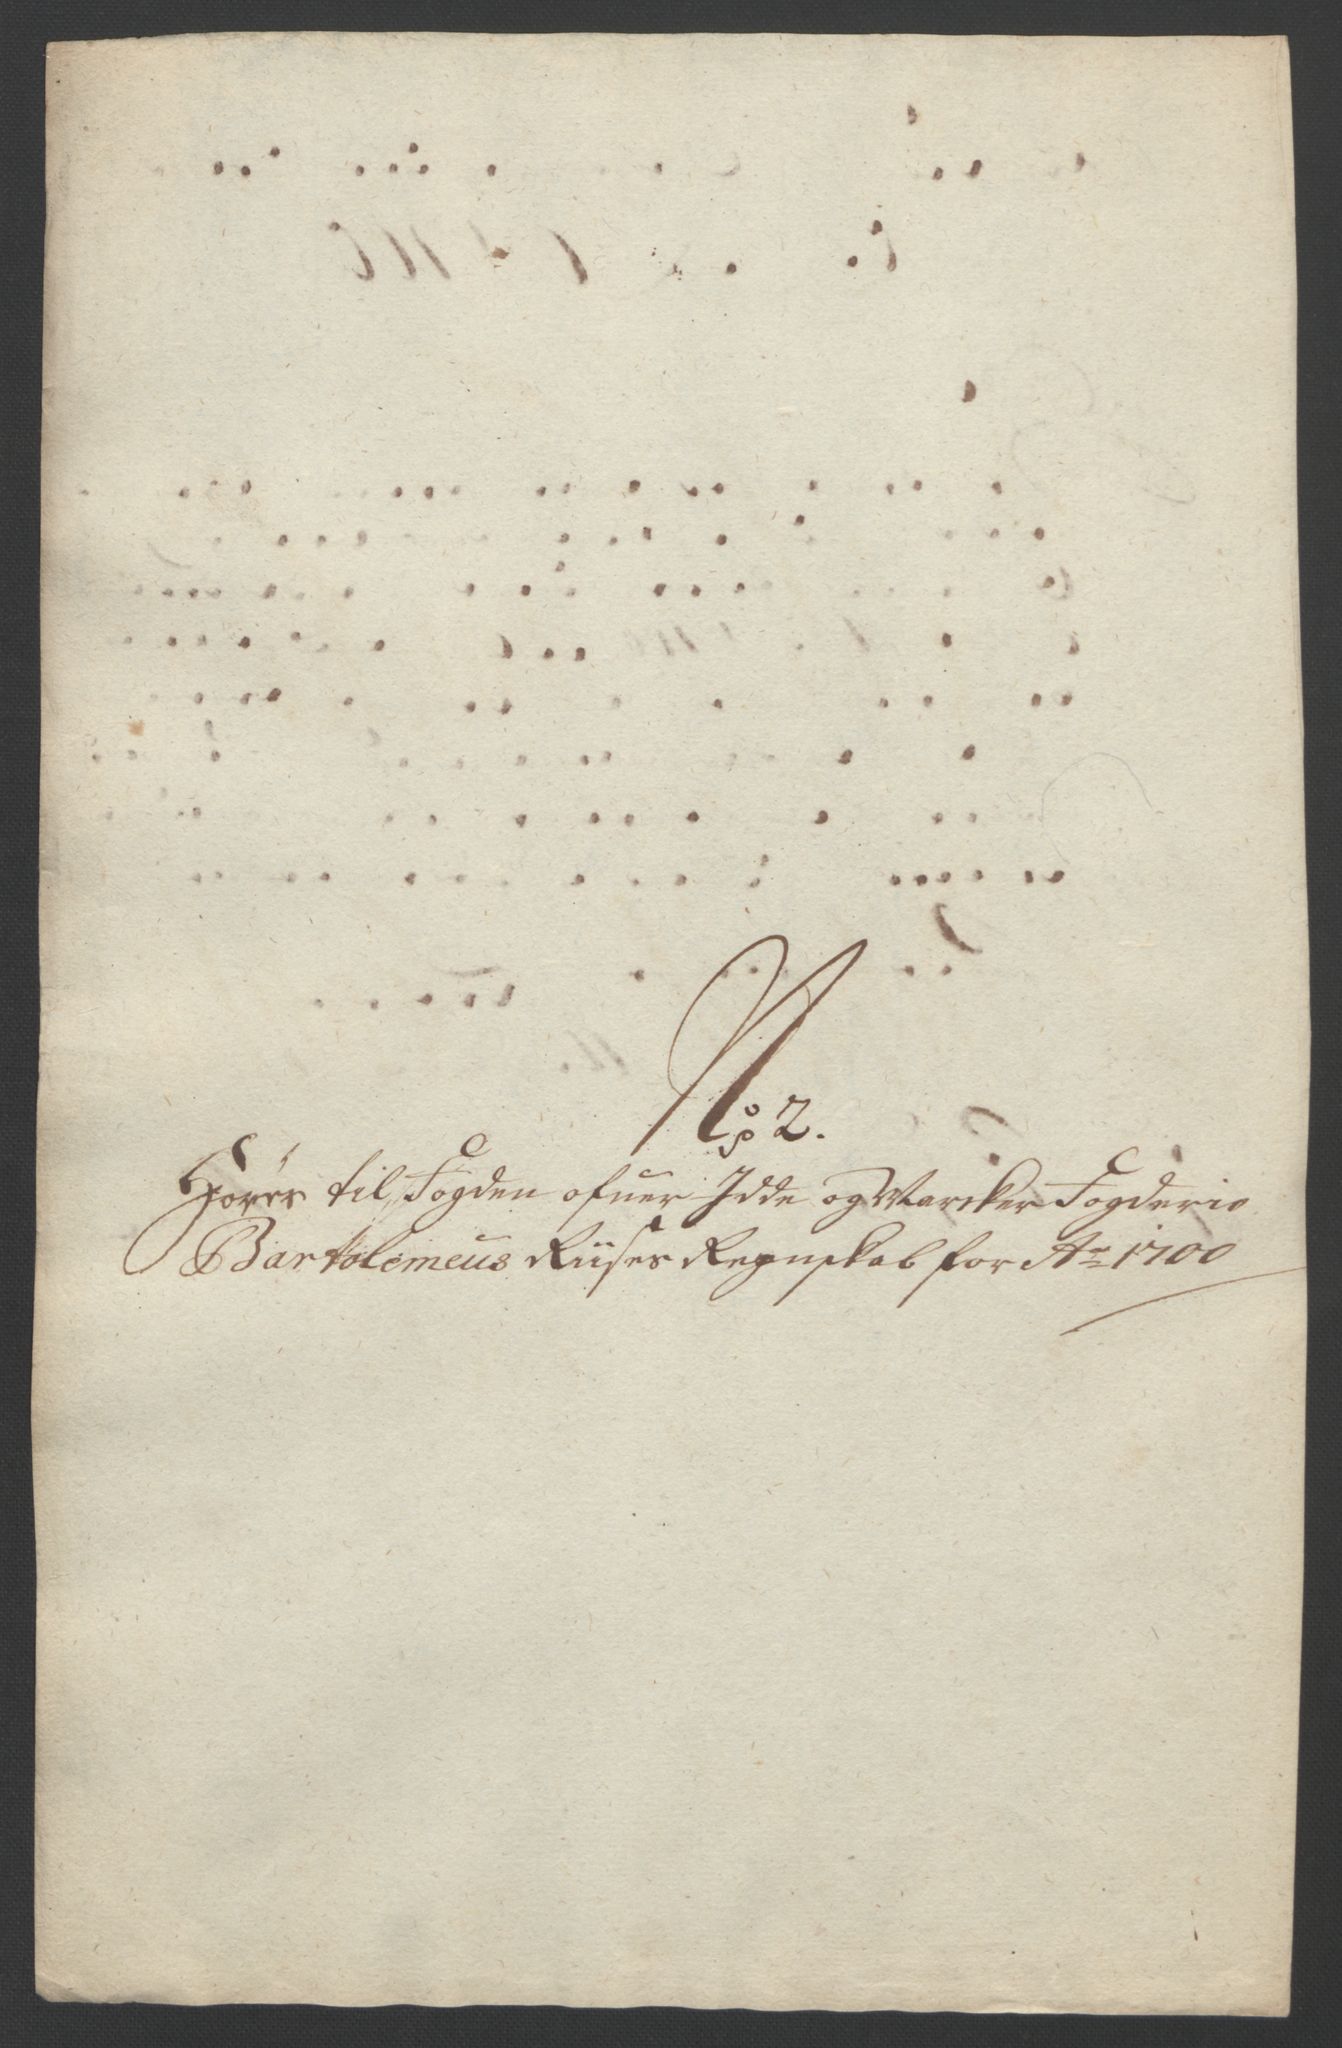 No 2.
Hører til Fogden ofuer Idde og Marcker Fogderie
Bartolemeus Riises Regnskab for Ao 1700